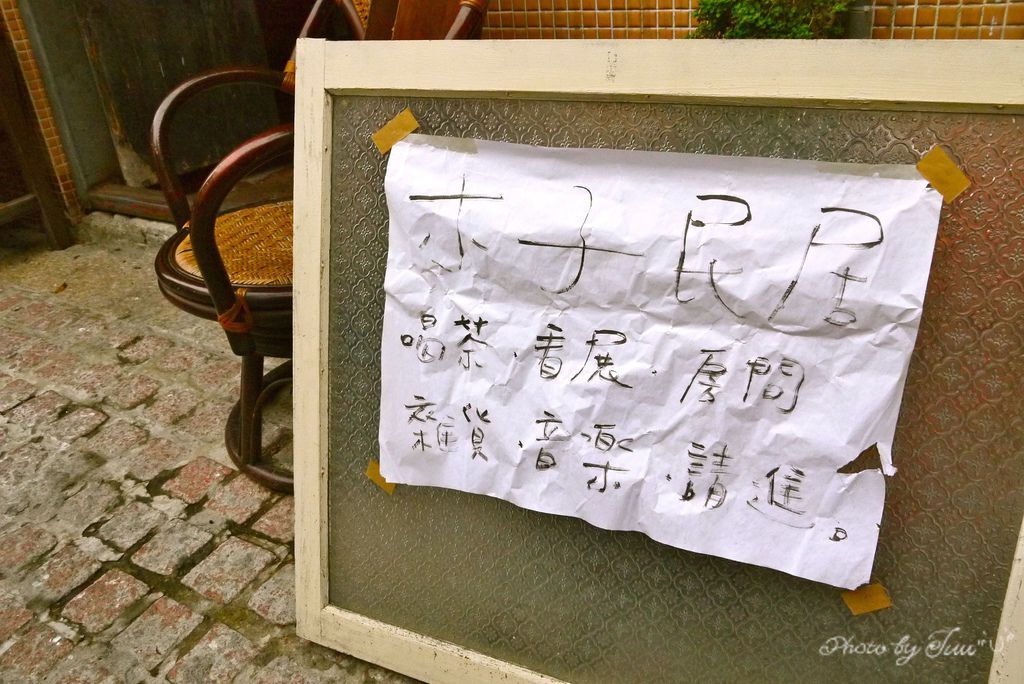 木子民居
喝茶.看展.房間
雜貨.音樂.請進。
Photo by Tuu"U"